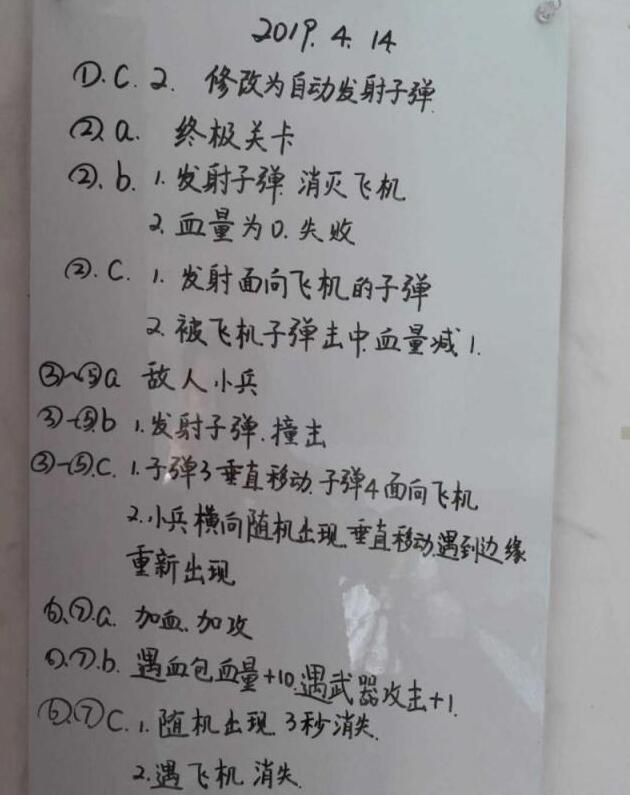 2019. 4. 14
①.C. 2. 修改为自动发射子弹.
②.a. 终极关卡
②.b. 1.发射子弹.消灭飞机
2.血量为0.失败
②.C. 1.发射面向飞机的子弹
2.被飞机子弹击中.血量减1.
③~⑤a 敌人小兵
③-⑤b 1.发射子弹.撞击
③-⑤.C. 1.子弹3垂直移动.子弹4面向飞机
2.小兵横向随机出现.垂直移动.遇到边缘
重新出现.
⑥.⑦.a. 加血.加攻
⑥.⑦.b. 遇血包血量+10.遇武器攻击+1.
⑥.⑦C. 1.随机出现 3秒消失.
2.遇飞机 消失.